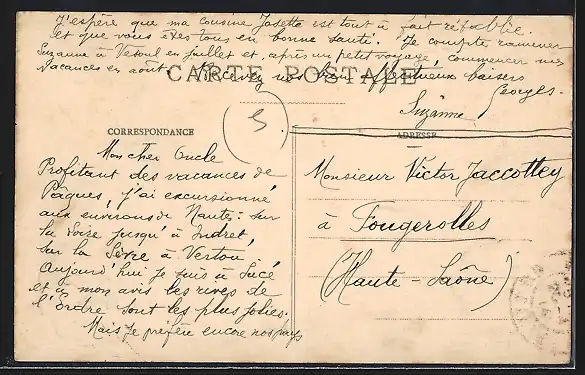 J'espère que ma cousine Josette est tout à fait rétablie.
Et que vous êtes tous en bonne santé. Je compte ramener
Suzanne à Vesoul en juillet et, après un petit voyage, commencer mes
vacances en août. Recevez nos bien affectueux baisers
Georges.
Suzanne
CARTE POSTALE
5
CORRESPONDANCE
Mon cher Oncle
Profitant des vacances de
Pâques, j'ai excursionné
aux environs de Nantes: sur
la Loire jusqu'à Indret,
sur la Sèvre à Vertou
Aujourd'hui je suis à Sucé
et à mon avis les rives de
l'Erdre sont les plus jolies.
Mais je préfère encore nos pays
ADRESSE
Monsieur Victor Jaccottey
à Fougerolles
(Haute-Saône)